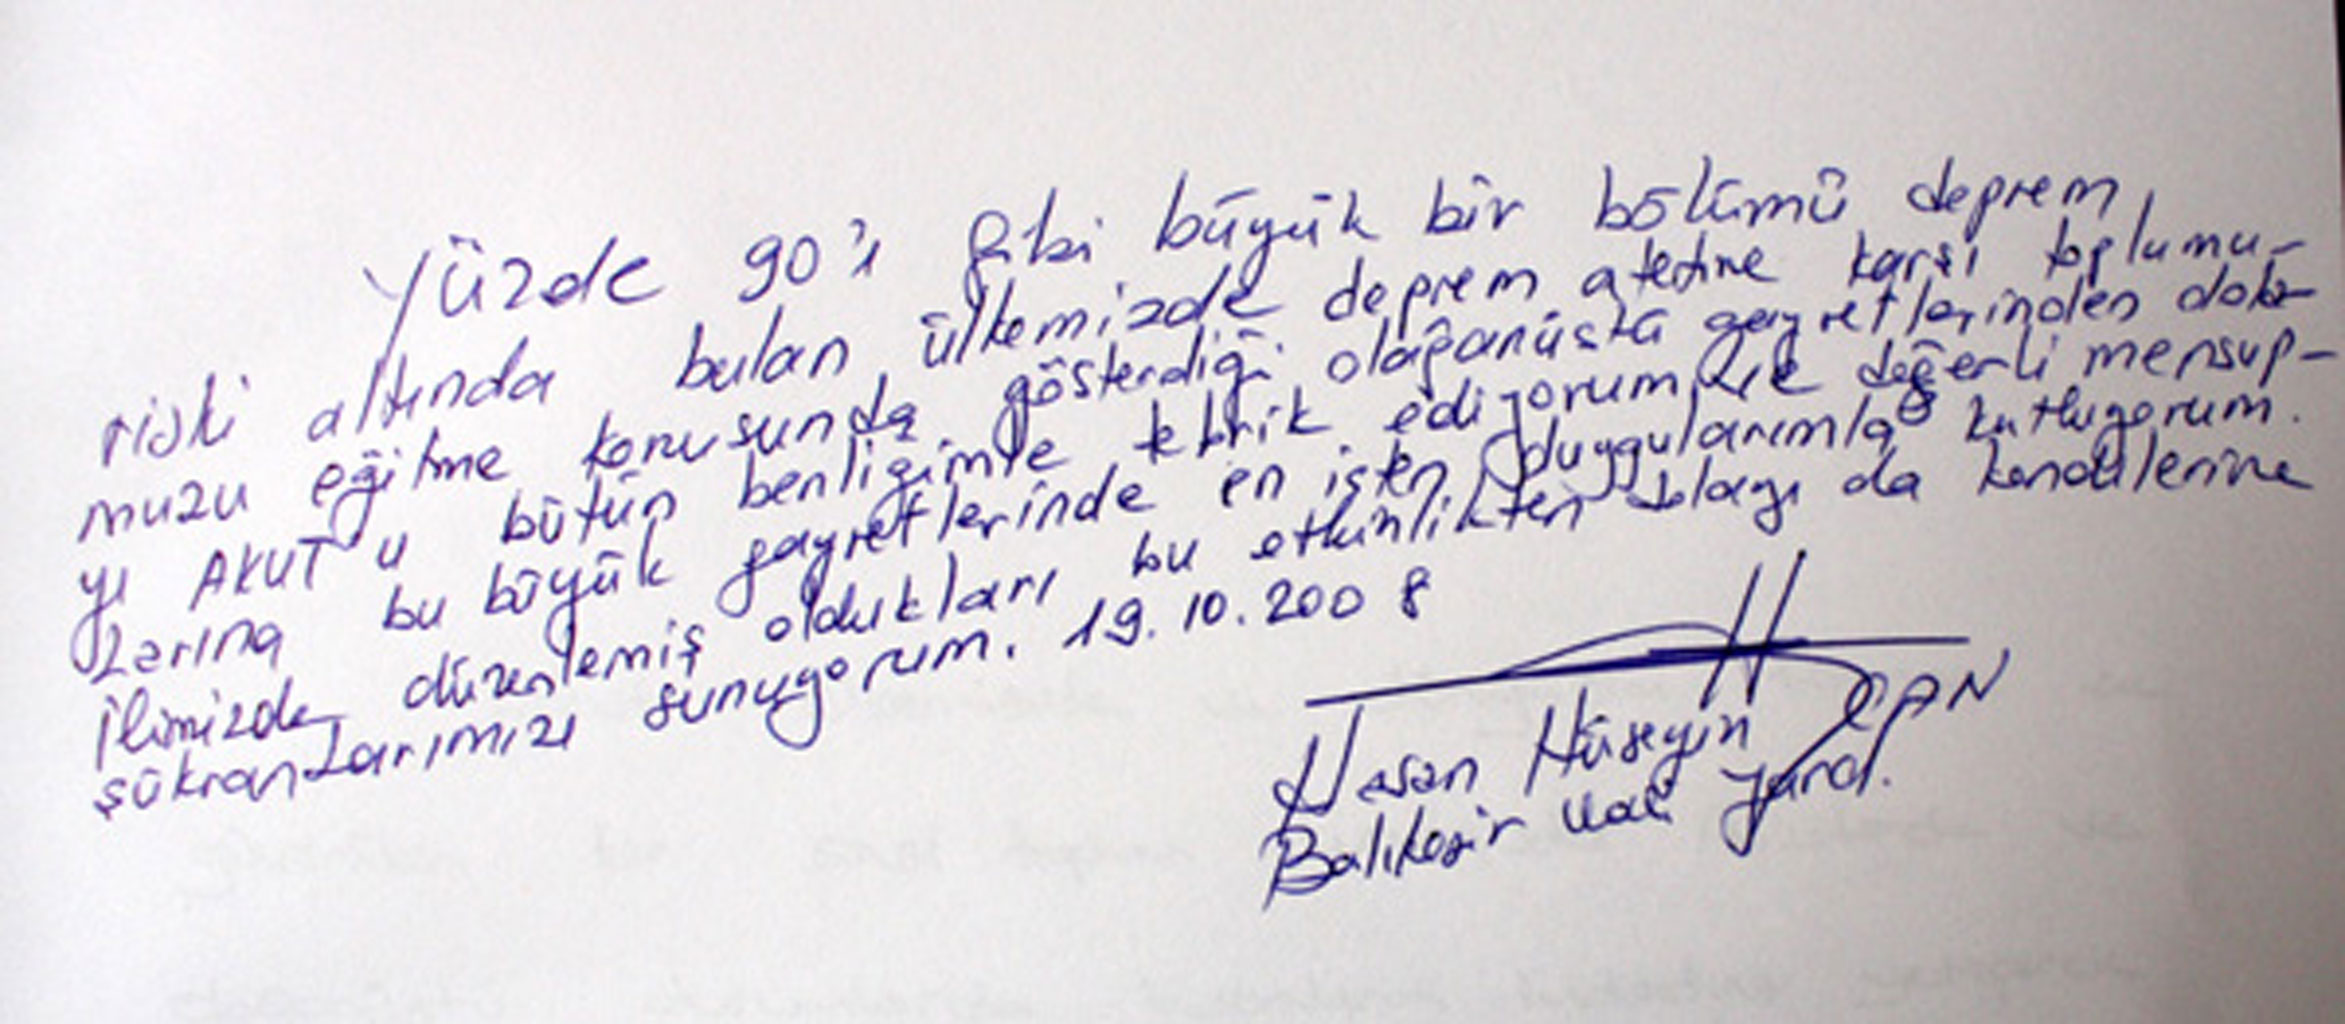 Yüzde 90'ı gibi büyük bir bölümü deprem
riski altında bulan ülkemizde deprem afetine karşı toplumu-
muzu eğitme konusunda gösterdiği olağanüstü gayretlerinden dola-
yı AKUT'u bütün benliğimle tebrik ediyorum, değerli mensup-
larına bu büyük gayretlerinde en içten duygularımla kutluyorum.
İlimizde düzenlemiş oldukları bu etkinlikten dolayı da kendilerine
şükranlarımızı sunuyorum. 19.10.2008
Hasan Hüseyin CAN
Balıkesir Vali Yard.